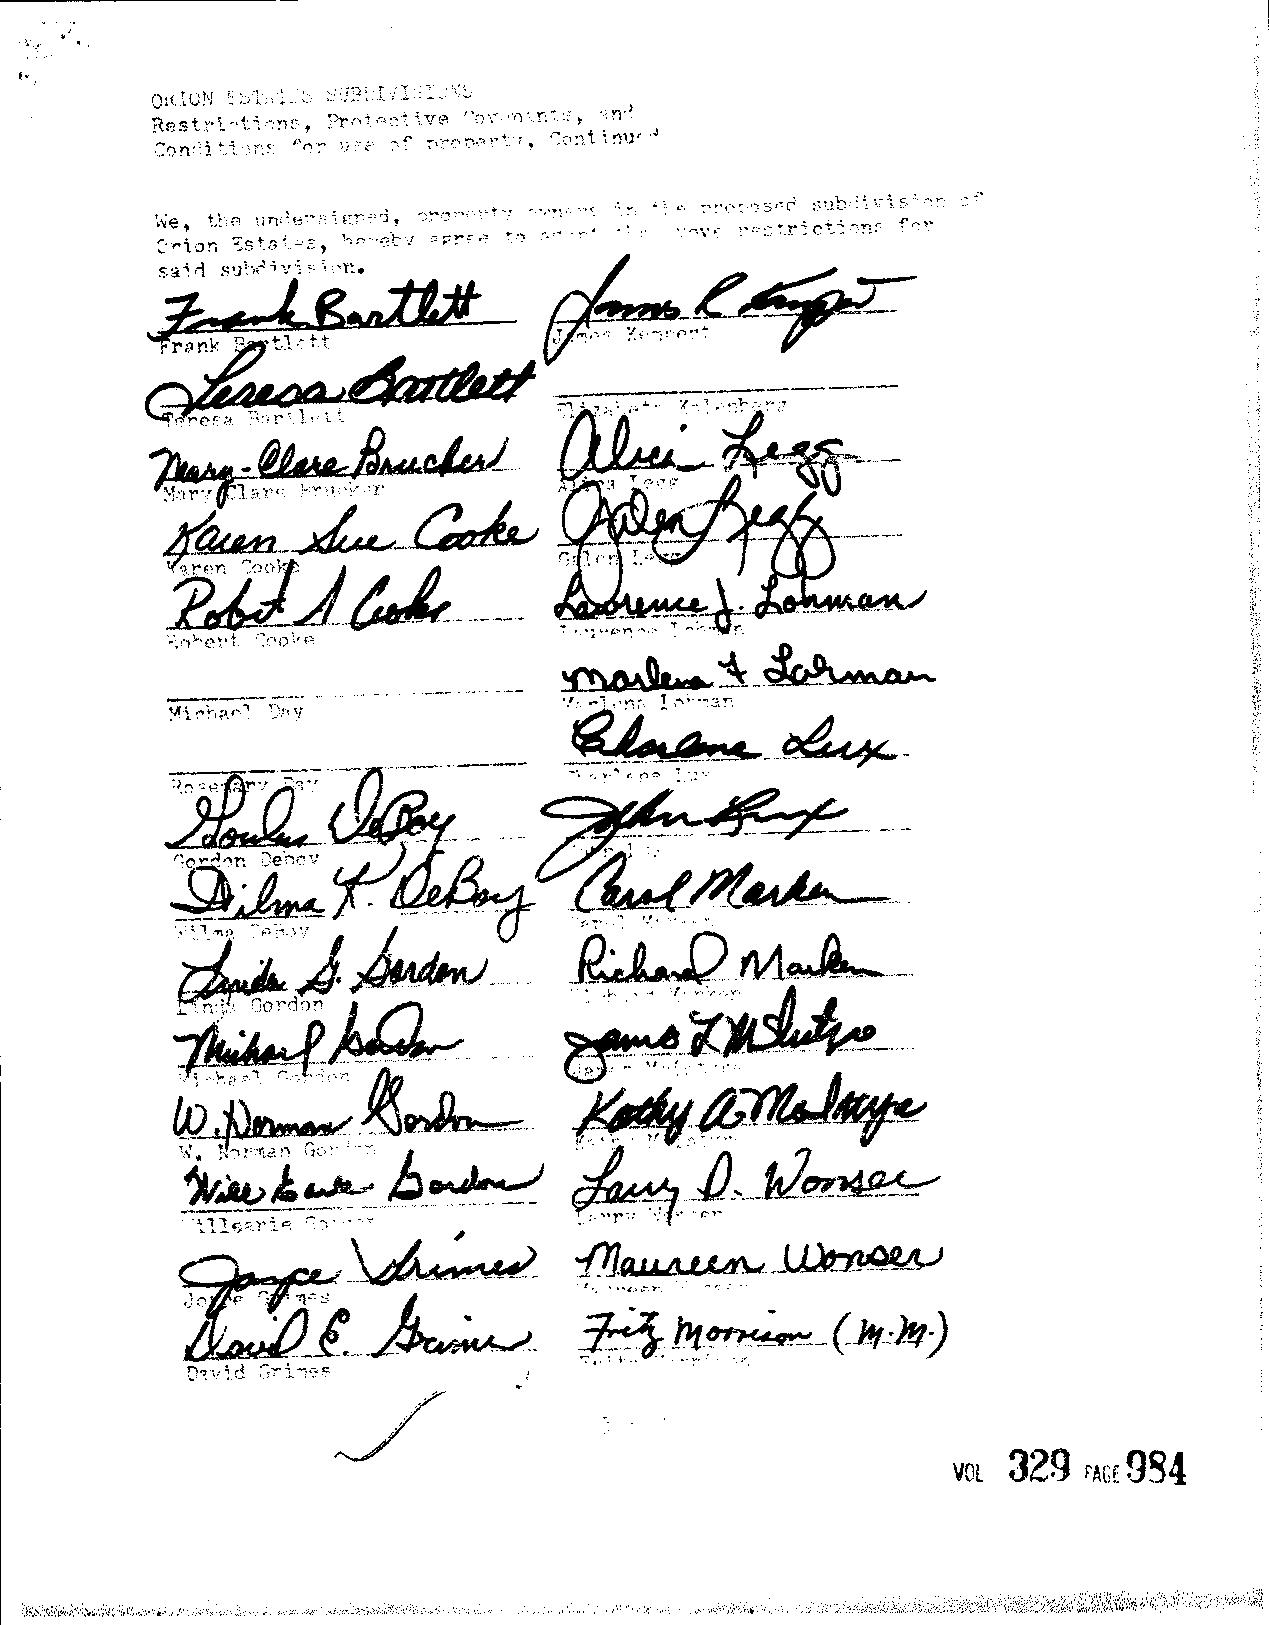 ORION ESTATES SUBDIVISIONS
Restrictions, Protective Covenants, and
Conditions for use of property, Continued
We, the undersigned, property owners in the proposed subdivision of
Orion Estates, hereby agree to adopt the above restrictions for
said subdivision.
Frank Bartlett
Frank Bartlett
Teresa Bartlett
Teresa Bartlett
Mary-Clare Brucker
Mary Clare Brucker
Karen Sue Cooke
Karen Cooke
Robert A Cooke
Robert Cooke
Michael Day
Rosemary Day
Gordon DeBoy
Gordon Deboy
Wilma K. DeBoy
Wilma Deboy
Linda G. Gordon
Linda Gordon
Michael Gordon
Michael Gordon
W. Norman Gordon
W. Norman Gordon
Willearle Gordon
Gordon
Joyce Grimes
Joyce Grimes
David E. Grimes
David Grimes
James R
James
Elizabeth
Alicia Legg
Legg
Galen Legg
Galen Legg
Lawrence J. Lohman
Lohman
Marlena F Lohman
Marlena Lohman
Charlene Lux
Charlene Lux
John Lux
Lux
Carol Marken
Carol Marken
Richard Marken
Richard Marken
James L McIntyre
Kathy A McIntyre
Larry D. Wonser
Larry Wonser
Maureen Wonser
Maureen Wonser
Fritz Morrison (M.M.)
Fritz Morrison
VOL 329 PAGE 984